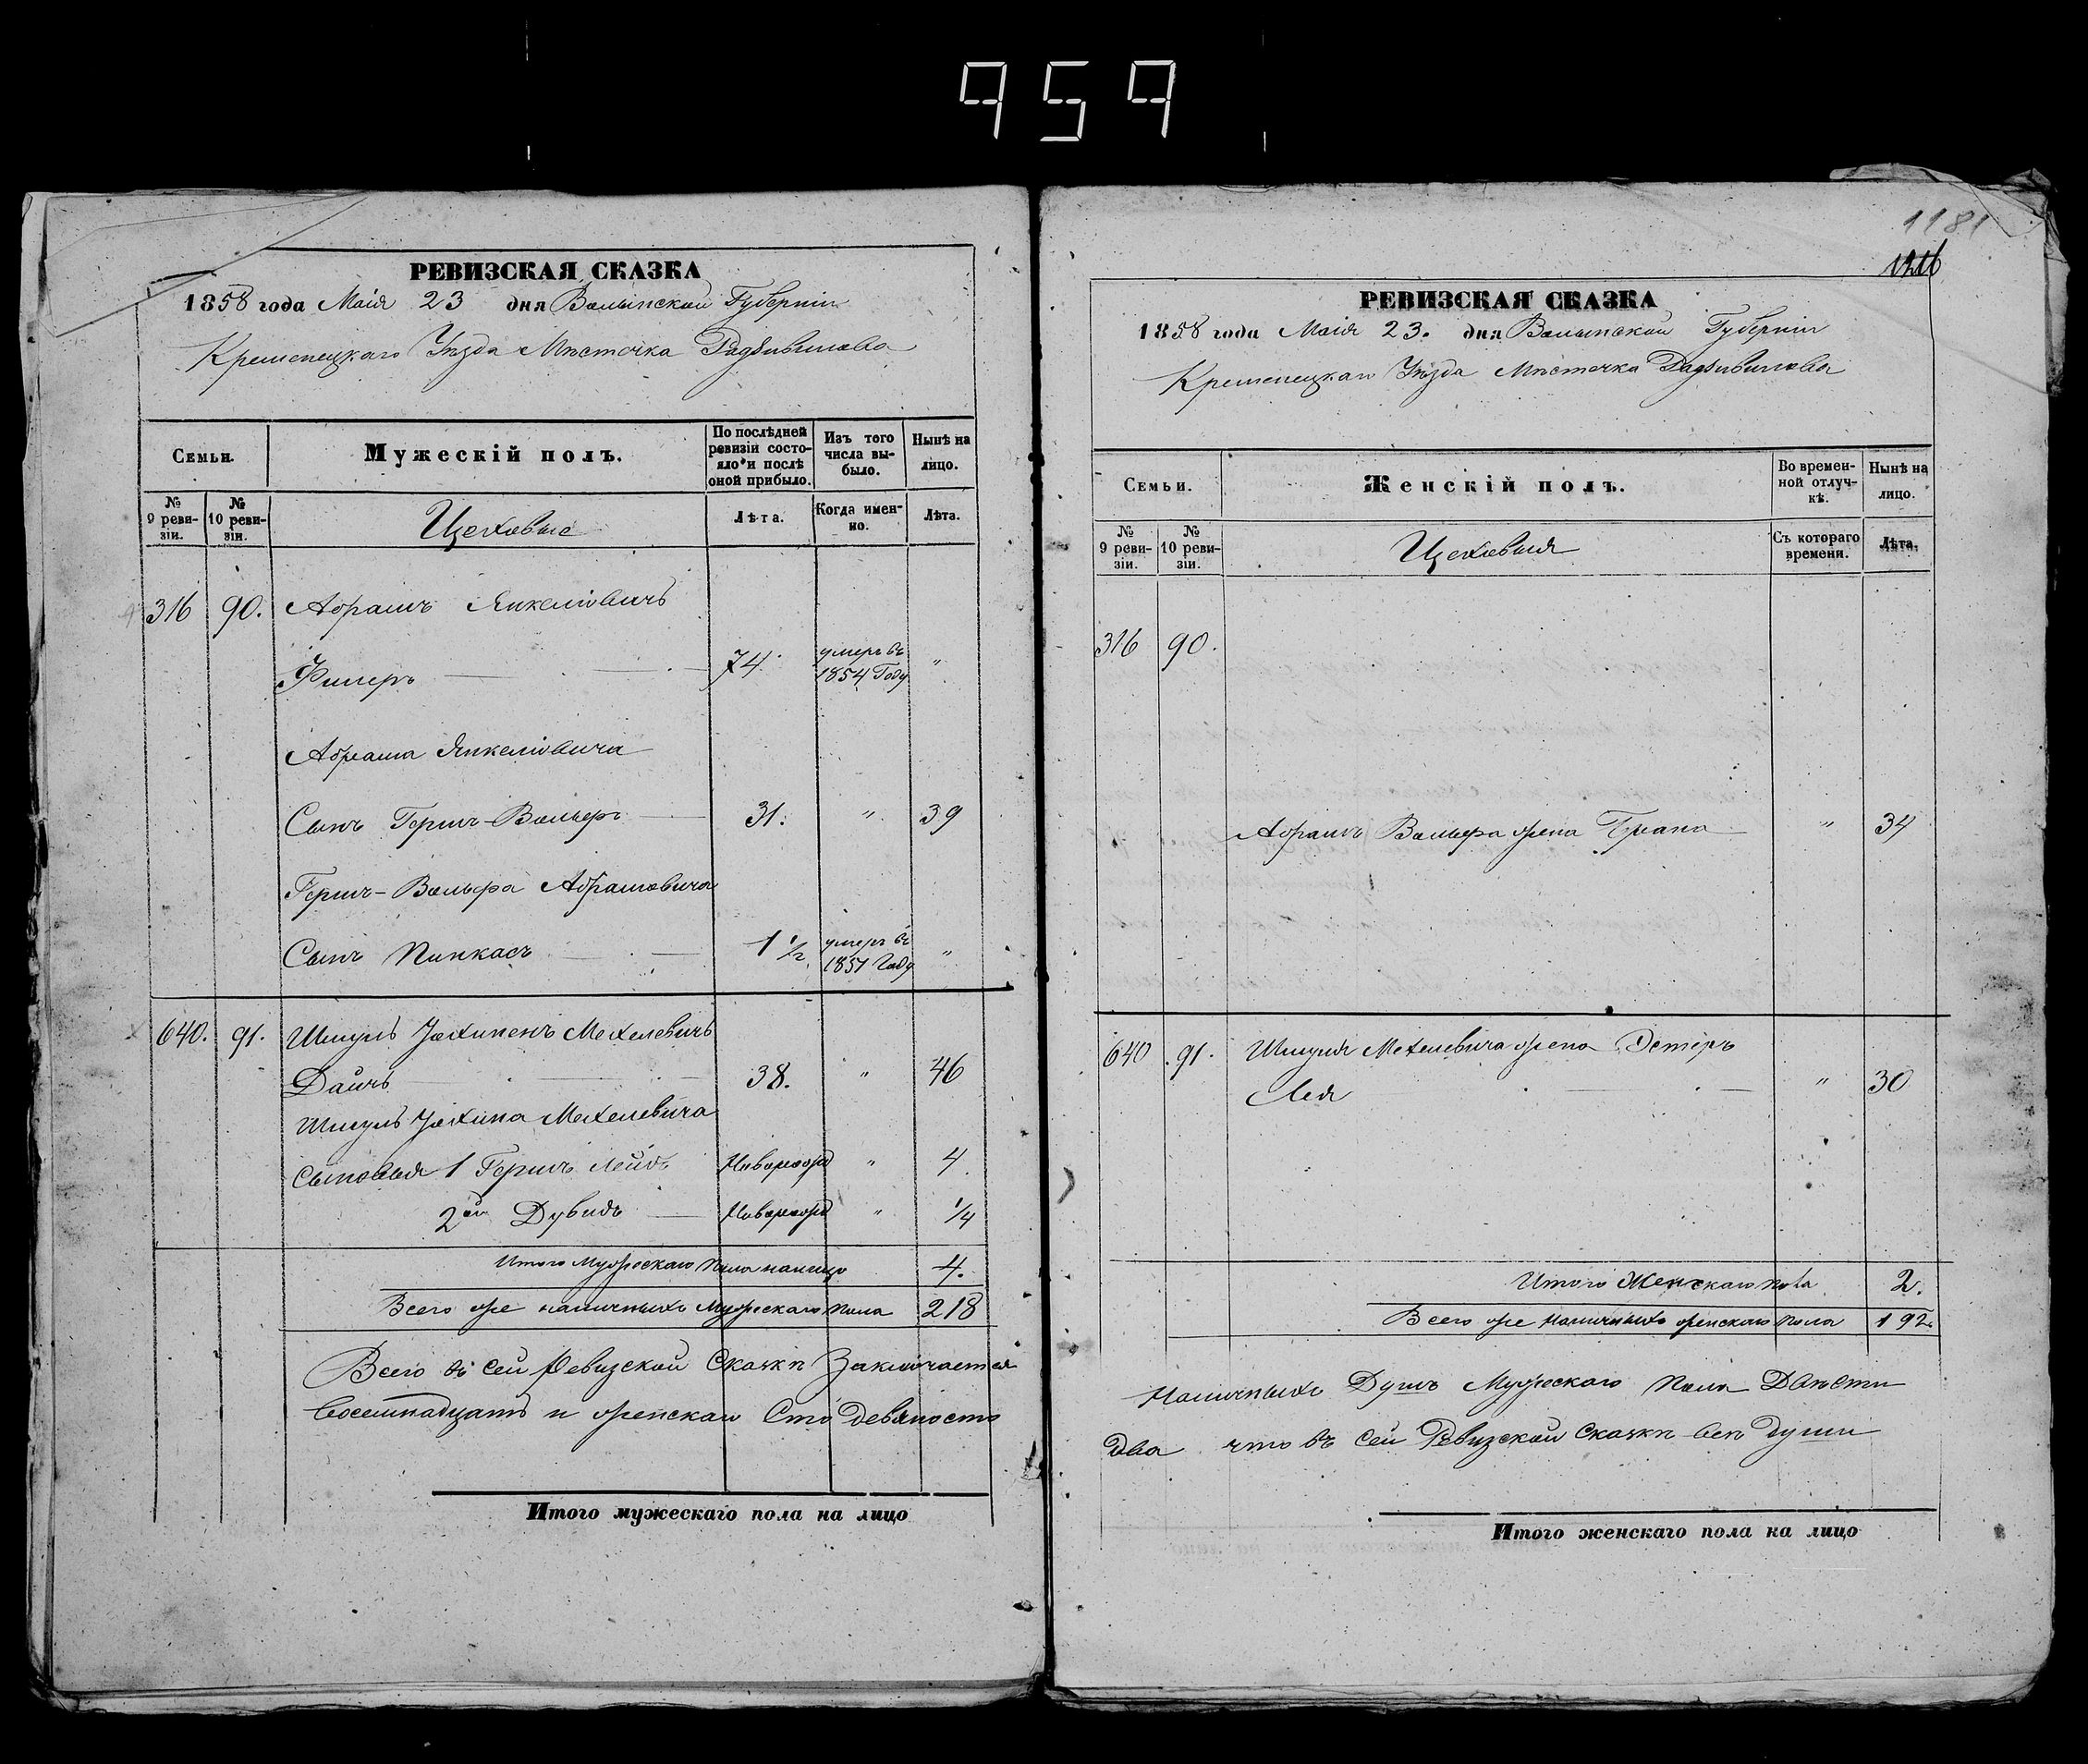 959
РЕВИЗСКАЯ СКАЗКА
1858 года Маія 23 дня Волынской Губерніи
Кременецкаго Уѣзда Мѣсточка Радзивилова
Семьи.
Мужескій полъ.
По послѣдней ревизіи состояло и послѣ оной прибыло.
Изъ того числа выбыло.
Нынѣ на лицо.
№ 9 ревизіи.
№ 10 ревизіи.
Цеховые
Лѣта.
Когда именно.
Лѣта.
316 90. Абрамъ Янкеліовичъ
74 умеръ въ 1854 Году "
Абрама Янкеліовича
Сынъ Гершъ-Вольфъ 31. " 39
Гершъ-Вольфа Абрамовича
Сынъ Пинкасъ 1 1/2 умеръ въ 1851 Году "
640. 91. Шмуль Мехелевичъ
Дайчъ 38. " 46
Шмуль Мехелевича
Сыновья 1 Гершъ Лейбъ Новорожд " 4
2ой Дувидъ Новорожд " 1/4
Итого Мужескаго Пола налицо 4.
Всего же наличныхъ Мужескаго Пола 218
Всего въ сей Ревизской Сказкѣ Заключается
Восемнадцать и женскаго Сто Девяносто
Итого мужескаго пола на лицо
1181
1216
РЕВИЗСКАЯ СКАЗКА
1858 года Маія 23. дня Волынской Губерніи
Кременецкаго Уѣзда Мѣсточка Радзивилова
Семьи.
Женскій полъ.
Во временной отлучкѣ.
Нынѣ на лицо.
№ 9 ревизіи.
№ 10 ревизіи.
Цеховыя
Съ котораго времени.
Лѣта.
316 90.
Абрамъ Вольфа жена " 34
640 91. Шмуля Мехелевича жена Эстеръ
Лея " 30
Итого Женскаго пола 2.
Всего же наличныхъ женскаго пола 192.
Наличныхъ Душъ Мужескаго Пола Двѣсти
два что въ сей Ревизской Сказкѣ всѣ души
Итого женскаго пола на лицо